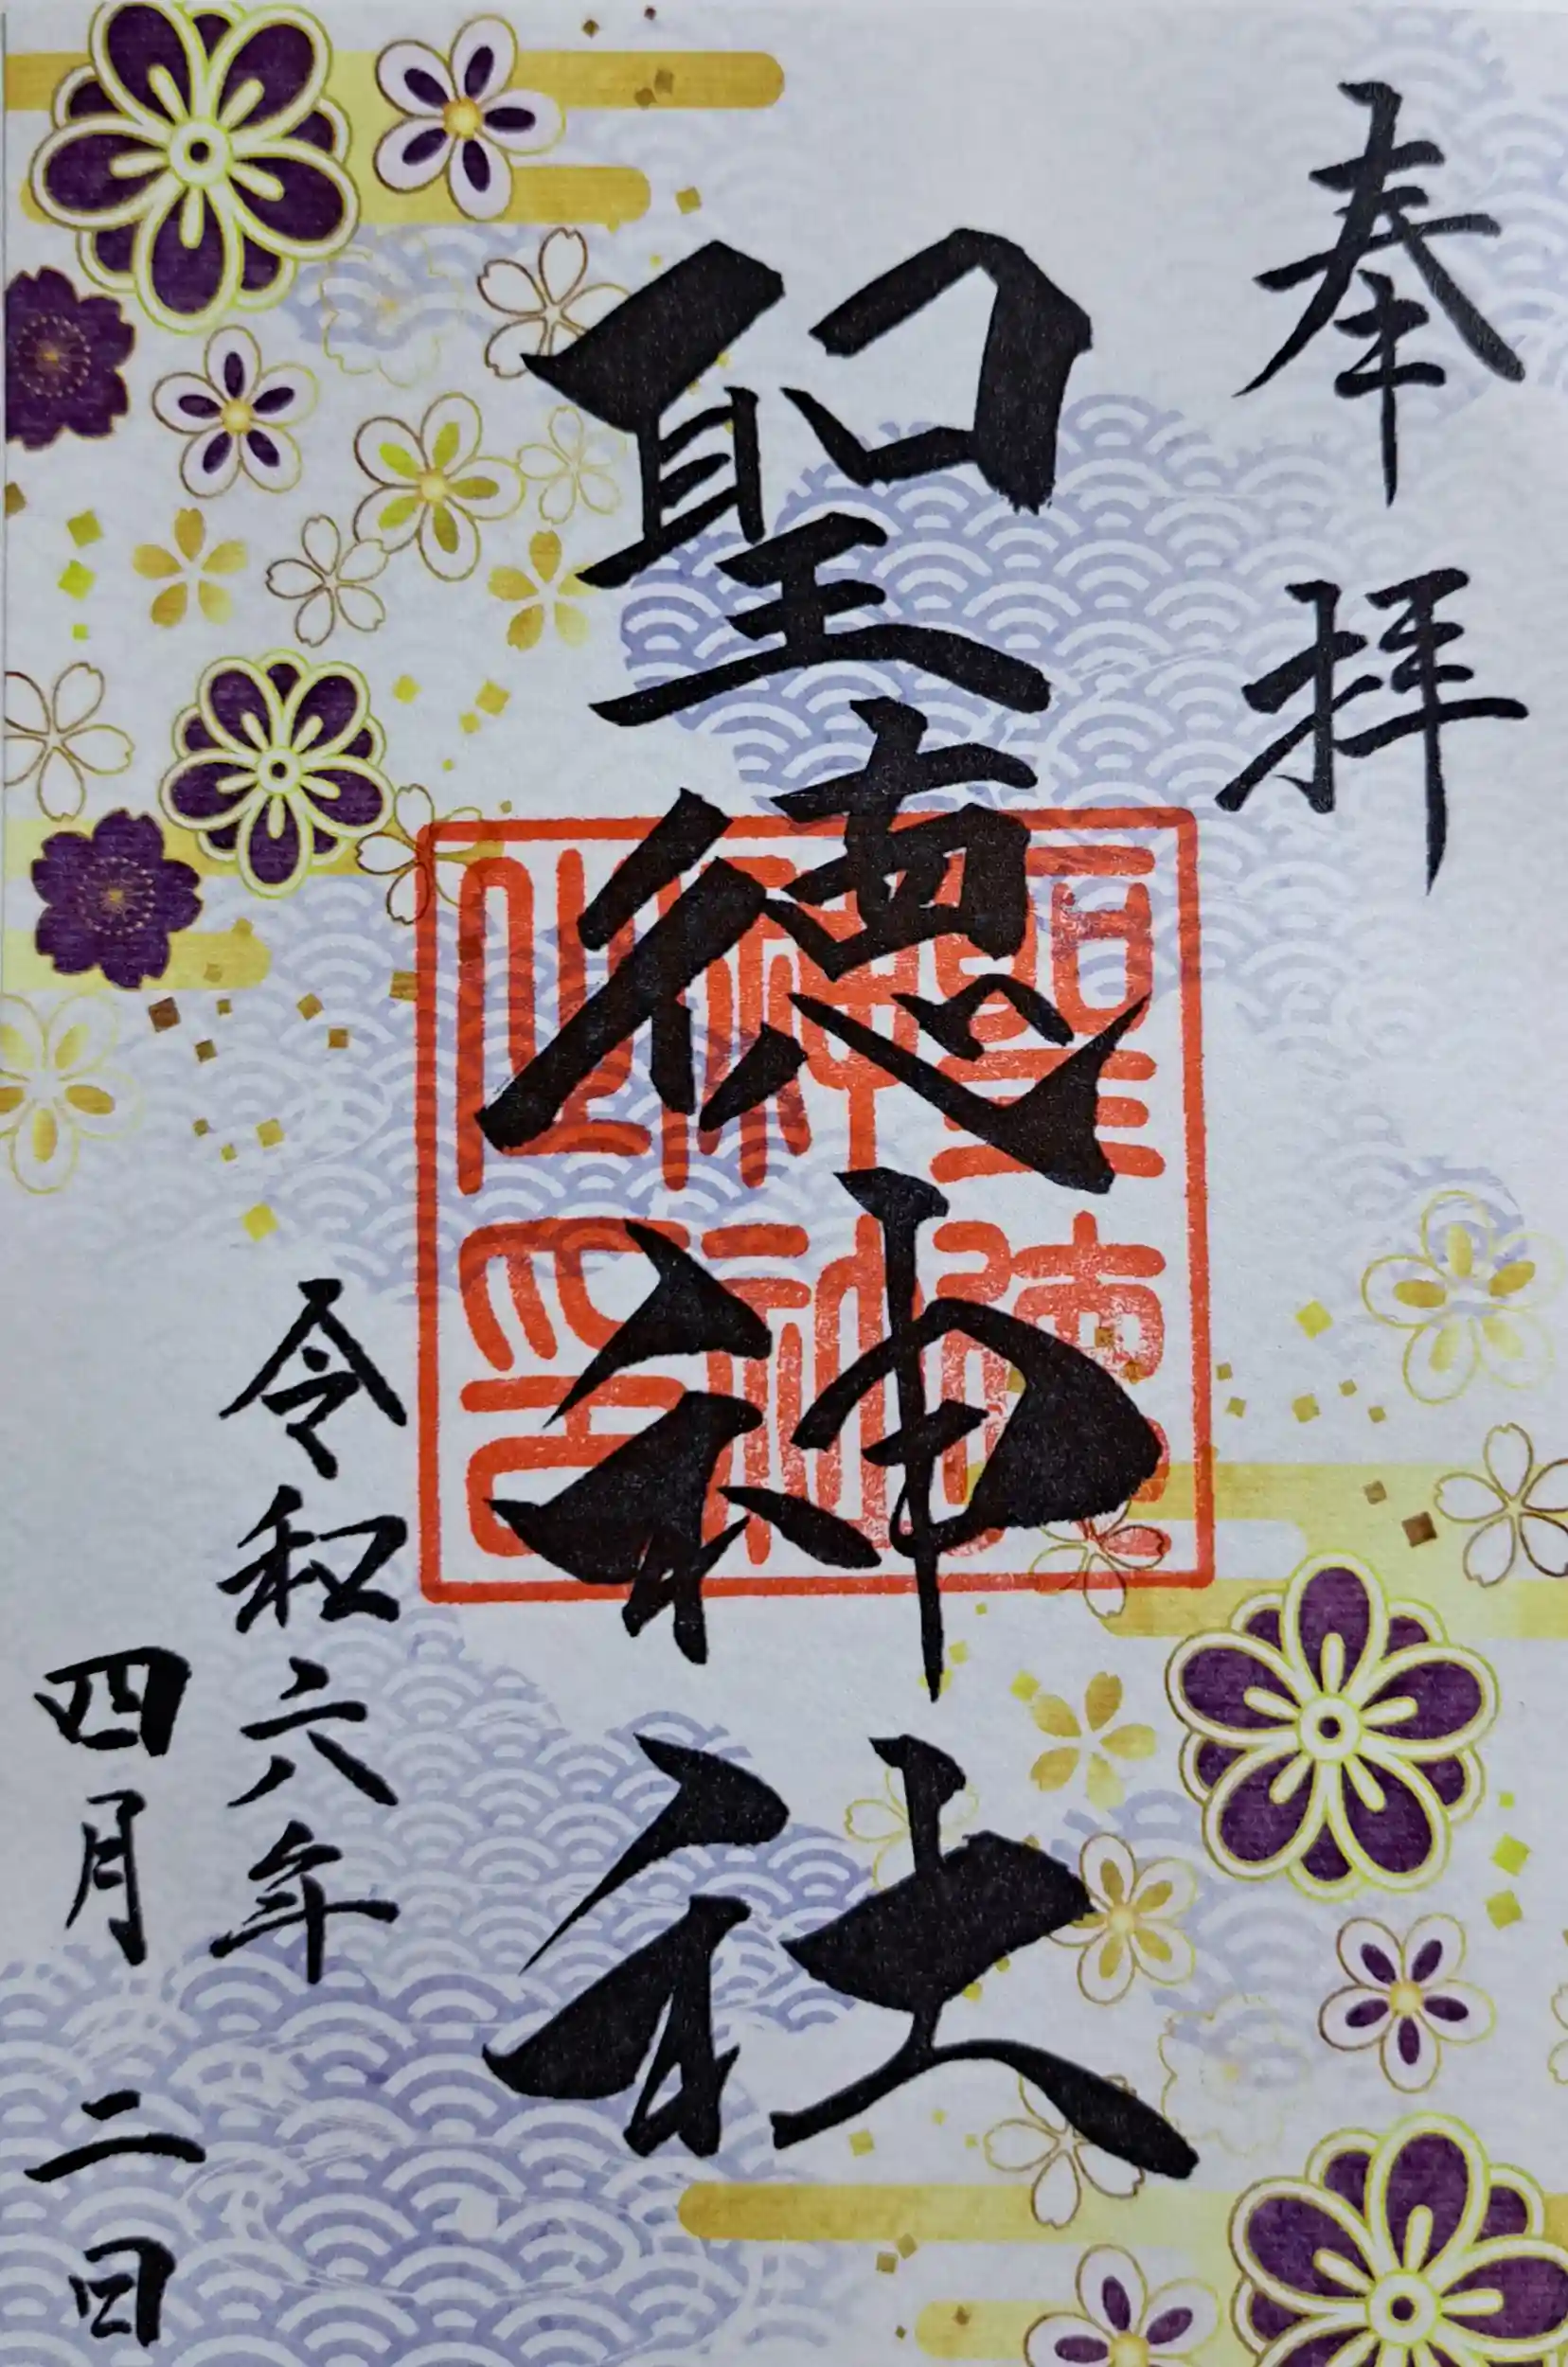 奉拝
聖徳神社
聖徳
神社
之印
令和六年
四月二日